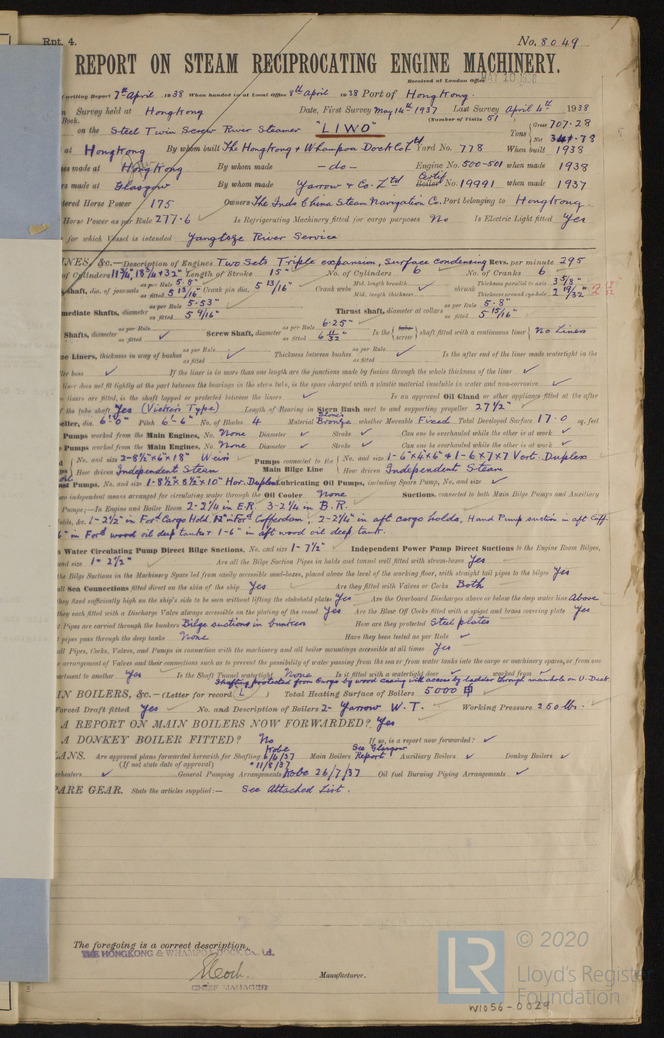 Rpt. 4.
No. 8049
REPORT ON STEAM RECIPROCATING ENGINE MACHINERY.
Received at London Office
writing Report 7th April 1938 When handed in at Local Office 8th April 1938 Port of Hongkong.
Survey held at Hongkong Date, First Survey May 14th 1937 Last Survey April 4th 1938
Book. (Number of Visits 51
on the Steel Twin Screw River Steamer "LIWO" Tons Gross 707.28
Net
at Hongkong By whom built The Hongkong & Whampoa Dock Co Ltd Yard No. 778 When built 1938
made at Hongkong By whom made -do- Engine No. 500-501 when made 1938
made at Glasgow By whom made Yarrow & Co. Ltd Certif Boiler No. 19991 when made 1937
Horse Power 175 Owners The Indo China Steam Navigation Co. Port belonging to Hongkong.
Horse Power as per Rule 277.6 Is Refrigerating Machinery fitted for cargo purposes No Is Electric Light fitted Yes
for which Vessel is intended Yangtsze River Service
&c.—Description of Engines Two Sets Triple expansion, Surface condensing Revs. per minute 295
of Cylinders 11¾", 18¾" & 32" Length of Stroke 15" No. of Cylinders 6 No. of Cranks 6
shaft, dia. of journals as per Rule 5.8" as fitted 5 13/16" Crank pin dia. 5 13/16" Crank webs Mid. length breadth Mid. length thickness shrunk Thickness parallel to axis 3 5/8" Thickness around eye-hole 2 19/32"
mediate Shafts, diameter as per Rule 5.53" as fitted 5 9/16" Thrust shaft, diameter at collars as per Rule 5.8" as fitted 5 15/16"
Shafts, diameter as per Rule as fitted Screw Shaft, diameter as per Rule 6.25" as fitted 6 11/32" Is the screw shaft fitted with a continuous liner No Liners
Liners, thickness in way of bushes as per Rule as fitted Thickness between bushes as per Rule as fitted Is the after end of the liner made watertight in the
boss If the liner is in more than one length are the junctions made by fusion through the whole thickness of the liner
liner does not fit tightly at the part between the bearings in the stern tube, is the space charged with a plastic material insoluble in water and non-corrosive
liners are fitted, is the shaft lapped or protected between the liners Is an approved Oil Gland or other appliance fitted at the after
of the tube shaft Yes (Vickers Type) Length of Bearing in Stern Bush next to and supporting propeller 27½"
dia. 6'-0" Pitch 6'-6" No. of Blades 4 Material Bronze whether Moveable Fixed Total Developed Surface 17.0 sq. feet
Pumps worked from the Main Engines, No. None Diameter Stroke Can one be overhauled while the other is at work
Pumps worked from the Main Engines, No. None Diameter Stroke Can one be overhauled while the other is at work
No. and size 2-8½"x6"x18" Weir Pumps connected to the Main Bilge Line No. and size 1-6"x6"x6" & 1-6x7x7 Vert. Duplex
How driven Independent Steam How driven Independent Steam
Pumps, No. and size 1-8½x8½x10" Hor. Duplex Lubricating Oil Pumps, including Spare Pump, No. and size
independent means arranged for circulating water through the Oil Cooler None Suctions, connected to both Main Bilge Pumps and Auxiliary
Pumps;—In Engine and Boiler Room 2-2¼ in E.R. 3-2¼ in B.R.
&c. 1-2½" in Ford Cargo Hold. in Ford Cofferdam, 2-2¼" in aft cargo holds, Hand Pump suction in aft Coff.
6" in Ford wood oil deep tank & 1-6" in aft wood oil deep tank.
Water Circulating Pump Direct Bilge Suctions, No. and size 1-7½" Independent Power Pump Direct Suctions to the Engine Room Bilges,
and size 1-2½" Are all the Bilge Suction Pipes in holds and tunnel well fitted with strum-boxes Yes
the Bilge Suctions in the Machinery Spaces led from easily accessible mud-boxes, placed above the level of the working floor, with straight tail pipes to the bilges Yes
all Sea Connections fitted direct on the skin of the ship Yes Are they fitted with Valves or Cocks Both
they fixed sufficiently high on the ship's side to be seen without lifting the stokehold plates Yes Are the Overboard Discharges above or below the deep water line Above
they each fitted with a Discharge Valve always accessible on the plating of the vessel Yes Are the Blow Off Cocks fitted with a spigot and brass covering plate Yes
Pipes are carried through the bunkers Bilge suctions in bunkers How are they protected Steel plates
pipes pass through the deep tanks None Have they been tested as per Rule
all Pipes, Cocks, Valves, and Pumps in connection with the machinery and all boiler mountings accessible at all times Yes
arrangement of Valves and their connections such as to prevent the possibility of water passing from the sea or from water tanks into the cargo or machinery spaces, or from one
to another Yes Is the Shaft Tunnel watertight None Is it fitted with a watertight door worked from
Shafting protected from Cargo by wood casing with access by ladder through manhole on U. Deck
IN BOILERS, &c.—(Letter for record) Total Heating Surface of Boilers 5000
Forced Draft fitted Yes No. and Description of Boilers 2- Yarrow W.T. Working Pressure 250 lb.
A REPORT ON MAIN BOILERS NOW FORWARDED? Yes
A DONKEY BOILER FITTED? No If so, is a report now forwarded?
ANS. Are approved plans forwarded herewith for Shafting Kobe 6/4/37 Main Boilers See Glasgow Report Auxiliary Boilers Donkey Boilers
(If not state date of approval) & 11/8/37
General Pumping Arrangements Kobe 26/7/37 Oil fuel Burning Piping Arrangements
PARE GEAR. State the articles supplied:— See Attached List.
The foregoing is a correct description,
THE HONGKONG & WHAMPOA DOCK Co. Ltd.
Manufacturer.
CHIEF MANAGER
LR © 2020
Lloyd's Register
Foundation
W1056-0029